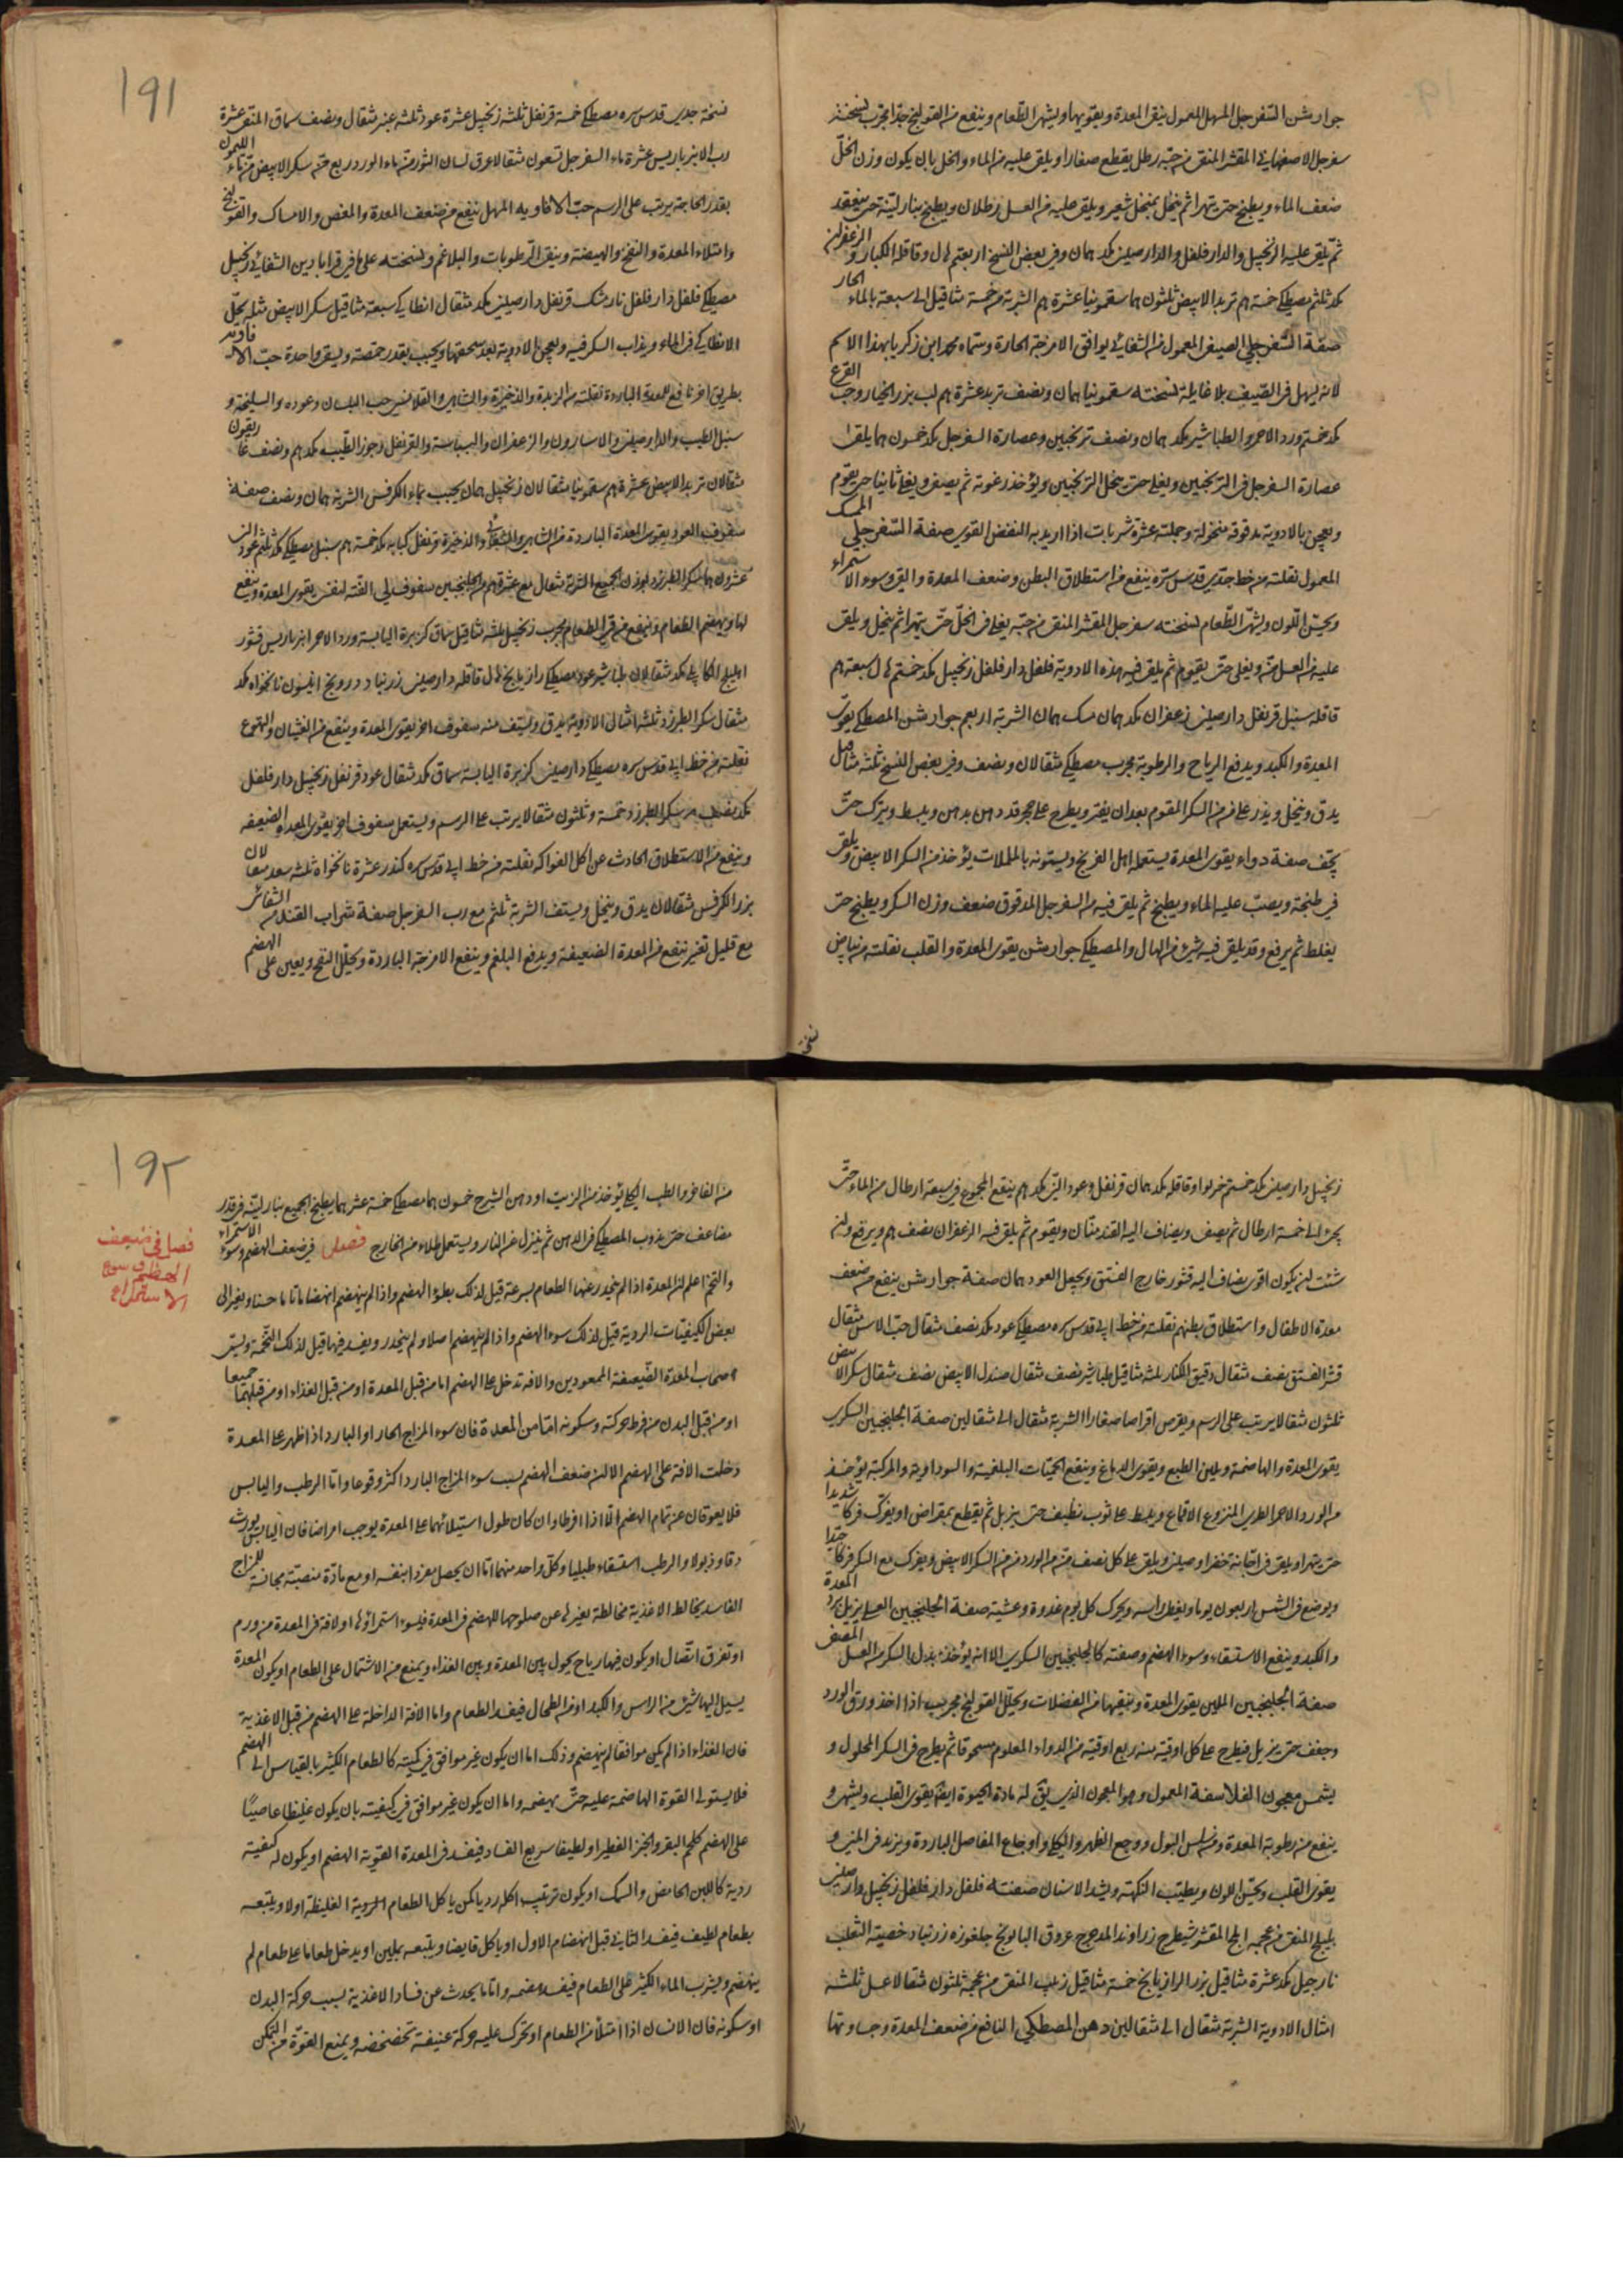 جوارشن السفرجل المسهل المعمول ينقى المعدة ويقويها ويشهى الطعام وينفع من القولنج جدا مجرب نسخته
سفرجل الاصفهانى المقشر المنقى من حبه رطل يقطع صغارا ويلقى عليه من الماء والخل بان يكون وزن الخل
ضعف الماء ويطبخ حتى يتهرا ثم ينخل بمنخل شعير ويلقى عليه من العسل رطلان ويطبخ بنار لينة حتى ينعقد
ثم يلقى عليه الزنجبيل والدار فلفل والدارصينى مكد همان وفى بعض النسخ اربعة هم هال وقاقلة الكبار والزعفران
مكد ثلثة مصطكى خمسة هم تربد الابيض ثلثون هما سقمونيا عشرة هم الشربة من خمسة مثاقيل الى سبعة بالماء الحار
صفة السفرجلى الصيفى المعمول من الشفائى يوافق الامزجة الحارة وسماه محمد ابن زكريا بهذا الاسم
لانه يسهل فى الصيف بلا غايلة نسخته سقمونيا همان ونصف تربد عشرة هم لب بزر الخيار وحب القرع
مكد خمسة ورد الاحمر والطباشير مكد همان ونصف ترنجبين وعصارة السفرجل مكد خمسون هما يلقى
عصارة السفرجل فى الترنجبين ويغلى حتى ينحل الترنجبين ويؤخذ رغوته ثم يصفى ويغلى ثانيا حتى يقوم
ويعجن بالادوية مدقوقة منخولة وجملته عشرة شربات اذا اريد به النفض القوى صفة السفرجلى الممسك
المعمول نقلته من خط جدى قدس سره ينفع من استطلاق البطن وضعف المعدة والقئ وسوء الاستمراء
ويحسن اللون ويشهى الطعام نسخته سفرجل المقشر المنقى من حبه يغلى فى الخل حتى يتهرا ثم ينخل ويلقى
عليه من العسل منه ويغلى حتى يقوم ثم يلقى فيه هذه الادوية فلفل دار فلفل زنجبيل مكد خمسة هال سبعة هم
قاقلة سنبل قرنفل دارصينى زعفران مكد همان مسك همان الشربة اربعة جوارشن المصطكى يقوى
المعدة والكبد ويدفع الرياح والرطوبة مجرب مصطكى مثقالان ونصف وفى بعض النسخ ثلثة مثاقيل
يدق وينخل ويذر على من السكر المقوم بعد ان يفتر ويطرح على حجر قد دهن بدهن ويبسط ويترك حتى
يجف صفة دواء يقوى المعدة يستعمله اهل الفرنج ويسمونه بالململات يؤخذ من السكر الابيض ويلقى
فى طنجة ويصب عليه الماء ويطبخ ثم يلقى فيه من السفرجل المدقوق ضعف وزن السكر ويطبخ حتى
يغلظ ثم يرفع وقد يلقى فيه شئ من الهال والمصطكى جوارشن يقوى المعدة والقلب نقلته من بياض
نسخة
١٩١
نسخة جدى قدس سره مصطكى خمسة قرنفل ثلثة زنجبيل عشرة عود ثلثة عنبر مثقال ونصف سماق المنقى عشرة
رب الانبرباريس عشرة ماء السفرجل تسعون مثقالا عرق لسان الثور منه ماء الورد ربع منه سكر الابيض منه ماء الليمون
بقدر الحاجة يرتب على الرسم حب الافاويه المسهل ينفع من ضعف المعدة والمغص والامساك والقولنج
وامتلاء المعدة والنفخ والهيضة وينقى الرطوبات والبلاغم ونسخته على ما فى قرابادين الشفائى زنجبيل
مصطكى فلفل دار فلفل نارمشك قرنفل دارصينى مكد مثقال انطاكى سبعة مثاقيل سكر الابيض مثله يحل
الانطاكى فى الماء ويذاب السكر فيه ويعجن الادوية بعد سحقها ويحبب بقدر حمصة ويسقى واحدة حب الافاويه
بطريق اخر نافع للمعدة الباردة نقلته من الزبدة والذخيرة والشاهى والقلانسى حب البلسان وعوده والسليخة و
سنبل الطيب والدارصينى والاسارون والزعفران والبسباسة والقرنفل وجوز الطيب مكد هم ونصف غاريقون
مثقالان تربد الابيض عشرة هم سقمونيا مثقالان زنجبيل همان يحبب بماء الكرفس الشربة همان ونصف صفة
سفوف العود يقوى المعدة الباردة من الشاهى والشفائى والذخيرة قرنفل كبابه مكد خمسة هم سنبل مصطكى مكد ثلثة عود النى
عشرون هما سكر الطبرزد بوزن الجميع الشربة مثقال مع عشرة هم من الجلنجبين سفوف لى الفته لنفسى يقوى المعدة وينفع
لها ويهضم الطعام وينفع من قئ الطعام مجرب زنجبيل ثلثة مثاقيل سماق كزبرة اليابسة ورد الاحمر انبرباريس قشور
اهليلج الكابلى مكد مثقالان طباشير عود مصطكى رازيانج هال قاقلة دارصينى زرنباد درونج انيسون نانخواه مكد
مثقال سكر الطبرزد ثلثة امثال الادوية يدق ويستف منه سفوف اخر يقوى المعدة وينفع من الغثيان والتهوع
نقلته من خط ابى قدس سره مصطكى دارصينى كزبرة اليابسة سماق مكد مثقال عود قرنفل زنجبيل دار فلفل
مكد نصف هم سكر الطبرزد خمسة وثلثون مثقالا يرتب على الرسم ويستعمل سفوف اخر يقوى المعدة الضعيفة
وينفع من الاستطلاق الحادث عن اكل الفواكه نقلته من خط ابى قدس سره كندر عشرة نانخواه ثلثة سعد مثقالان
بزر الكرفس مثقالان يدق وينخل ويستف الشربة ثلثة مع رب السفرجل صفة شراب القند من الشفائى
مع قليل تغير ينفع من المعدة الضعيفة ويدفع البلغم وينفع الامزجة الباردة ويحلل النفخ ويعين على الهضم
زنجبيل دارصينى مكد خمسة خربوا وقاقلة مكد همان قرنفل وعود النى مكد هم ينقع المجموع فى سبعة ارطال من الماء حتى
يجئ الى خمسة ارطال ثم يصفى ويضاف اليه القند منان ويقوم ثم يلقى فيه الزعفران نصف هم ويرفع وان
شئت ان يكون اقوى يضاف اليه قشور خارج الفستق ويجعل العود همان صفة جوارشن ينفع من ضعف
معدة الاطفال واستطلاق بطنهم نقلته من خط ابى قدس سره مصطكى عود مكد نصف مثقال حب الاس مثقال
قشر الفستق نصف مثقال دقيق الكنار ثلثة مثاقيل طباشير نصف مثقال صندل الابيض نصف مثقال سكر الابيض
ثلثون مثقالا يرتب على الرسم ويقرص اقراصا صغارا الشربة مثقال الى مثقالين صفة الجلنجبين السكرى
يقوى المعدة والهاضمة ويلين الطبع ويقوى الدماغ وينفع الحميات البلغمية والسوداوية والمركبة يؤخذ
من الورد الاحمر الطرى المنزوع الاقماع ويبسط على ثوب نظيف حتى يذبل ثم يقطع بمقراض او يفرك فركا شديدا
حتى يتهرا ويلقى فى اجانة خضرا وصينى ويلقى على كل نصف منه من الورد من من السكر الابيض ويفرك مع السكر فركا جيدا
ويوضع فى الشمس اربعون يوما ويغطى راسه ويحرك كل يوم غدوة وعشية صفة الجلنجبين العسلى يزيل برد المعدة
والكبد وينفع الاستسقاء وسوء الهضم وصفته كالجلنجبين السكرى الا انه يؤخذ بدل السكر من العسل المصفى
صفة الجلنجبين الملين يقوى المعدة وينقيها من الفضلات ويحلل القولنج مجرب اذا اخذ ورق الورد
وجفف حتى يذبل فيطرح على كل اوقية منه ربع اوقية من الدواء المعلوم مسحوقا ثم يطرح فى السكر المحلول و
يشمس معجون الفلاسفة المعمول وهو المعجون الذى يقى له مادة الحيوة ايضا يقوى القلب ويشهى و
ينفع من رطوبة المعدة ومن سلس البول ووجع الظهر والكلى واوجاع المفاصل الباردة ويزيد فى المنى و
يقوى القلب ويحسن اللون ويطيب النكهة ويشد الاسنان صنعته فلفل دار فلفل زنجبيل دارصينى
بليلج المنقى من عجمه املج المقشر شيطرج زراوند المدحرج عروق البابونج جلغوزه زرنباد خصية الثعلب
نارجيل مكد عشرة مثاقيل بزر الرازيانج خمسة مثاقيل زبيب المنقى من عجمه ثلثون مثقالا عسل ثلثة
امثال الادوية الشربة مثقال الى مثقالين دهن المصطكى النافع من ضعف المعدة وجساوتها
١٩٢
من الفاخر والطب الكيميائى يؤخذ من الزيت او دهن الشيرج خمسون هما مصطكى خمسة عشر هما يطبخ الجميع بنار لينة فى قدر
مضاعف حتى يذوب المصطكى فى الدهن ثم ينزل عن النار ويستعمل طلاء من الخارج فصل فى ضعف الهضم وسوء الاستمراء
فصل فى ضعف
الهضم وسوء
الاستمراء
والتخم اعلم ان المعدة اذا لم ينحدر عنها الطعام بسرعة قيل لذلك بطوء الهضم واذا لم ينهضم انهضاما تاما حسنا ويتغير الى
بعض الكيفيات الردية قيل لذلك سوء الهضم واذا لم ينهضم اصلا ولم ينحدر ويفسد فيها قيل لذلك التخمة ويسمى
اصحاب المعدة الضعيفة الممعودين والافة تدخل على الهضم اما من قبل المعدة او من قبل الغذاء او من قبلهما جميعا
او من قبل البدن من فرط حركته وسكونه اما من المعدة فان سوء المزاج الحار او البارد اذا ظهر على المعدة
دخلت الافة على الهضم الا ان ضعف الهضم بسبب سوء المزاج البارد اكثر وقوعا واما الرطب واليابس
فلا يعوقان عن تمام الهضم الا اذا افرطا وان كان طول استيلائهما على المعدة يوجب امراضا فان اليابس يورث
دقا وذبولا والرطب استسقاء طبليا وكل واحد منهما اما ان يحصل مفردا بنفسه او مع مادة منصبة مجانسة للمزاج
الفاسد يخالط الاغذية مخالطة يغيرها عن صلوحها للهضم فى المعدة فيسوء استمراؤها او لافة فى المعدة من ورم
او تفرق اتصال او يكون فيها رياح يحول بين المعدة وبين الغذاء ويمنع من الاشتمال على الطعام او يكون المعدة
يسيل اليها شئ من الراس والكبد او من الطحال فيفسد الطعام واما الافة الداخلة على الهضم من قبل الاغذية
فان الغذاء اذا لم يكن موافقا لم ينهضم وذلك اما ان يكون غير موافق فى كميته كالطعام الكثير بالقياس الى الهضم
فلا يستولى القوة الهاضمة عليه حتى يهضمه واما ان يكون غير موافق فى كيفيته بان يكون غليظا عاصيا
على الهضم كلحم البقر والخبز الفطير او لطيفا سريع الفساد فيفسد فى المعدة القوية الهضم او يكون له كيفية
ردية كاللبن الحامض والسمك او يكون ترتيب اكله رديا كمن ياكل الطعام الردية الغليظة اولا ويتبعه
بطعام لطيف فيفسد الثانى قبل انهضام الاول او ياكل قابضا ويتبعه بملين او يدخل طعاما على طعام لم
ينهضم ويشرب الماء الكثير على الطعام فيفسد هضمه واما ما يحدث من فساد الاغذية بسبب حركة البدن
او سكونه فان الانسان اذا امتلأ من الطعام او تحرك عليه حركة عنيفة تخضخضه ويمنع القوة من التمكن